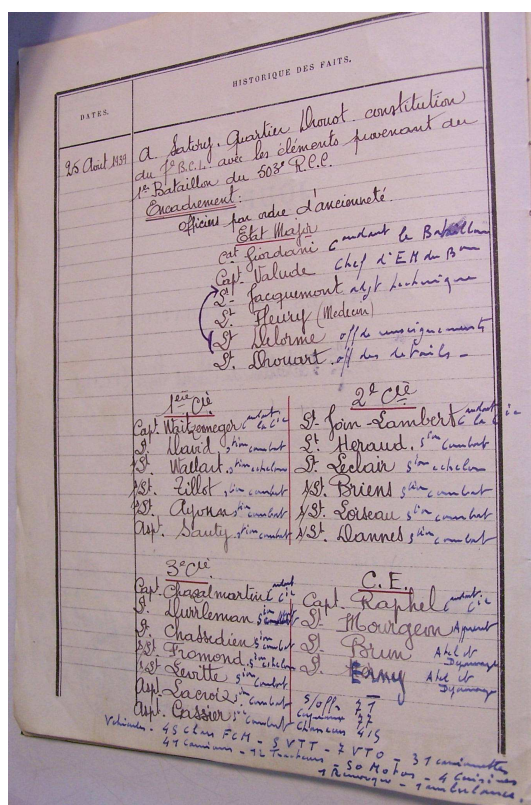 DATES.
HISTORIQUE DES FAITS.
25 Août 1939
A Satory. Quartier Drouot. constitution
du 7e B.C.L. avec les éléments provenant du
1er Bataillon du 503e R.C.C.
Encadrement:
Officiers par ordre d'ancienneté.
Etat Major
Cat Giordani Cmdant le Bataillon
Capt Valude Chef d'EM du Bon
Lt Jacquemont adjt technique
Lt. Fleury (Medecin)
Lt Delorme off de renseignements
Lt. Drouart. off des details -
1ère Cie
Capt. Waitzenneger cmdant la Cie
Lt. David, son combat
Lt. Waellart, son echelon
s/Lt. Zillot, son combat
s/Lt. Ayonn son combat
Asp. Sauty son combat
2e Cie
Lt. Join-Lambert Cmdant la Cie
Lt. Heraud. son combat
Lt. Leclair son echelon
s/Lt. Briens son combat
s/Lt. Loiseau son combat
s/Lt. Dannes son combat
3e Cie
Capt. Chazalmartin cmdant Cie
Lt. Durrleman son combat
Lt. Chassedien son combat
s/Lt. Fromond son echelon
s/Lt Levitte son combat
Asp. Lacroix son combat
Aspt. Cassier son combat
C.E.
Capt. Raphel cmdant Cie
Lt Mourgeon
Lt. Brun Atel et Depannage
Lt. Atel et Depannage
S/off. 71
Chasseurs 415
Vehicules - 45 chars FCM - 5 VTT - 7 VTO - 31 camionnettes
41 camions - 12 Tracteurs - 50 Motos - 4 cuisines
1 Remorque - 1 ambulance.